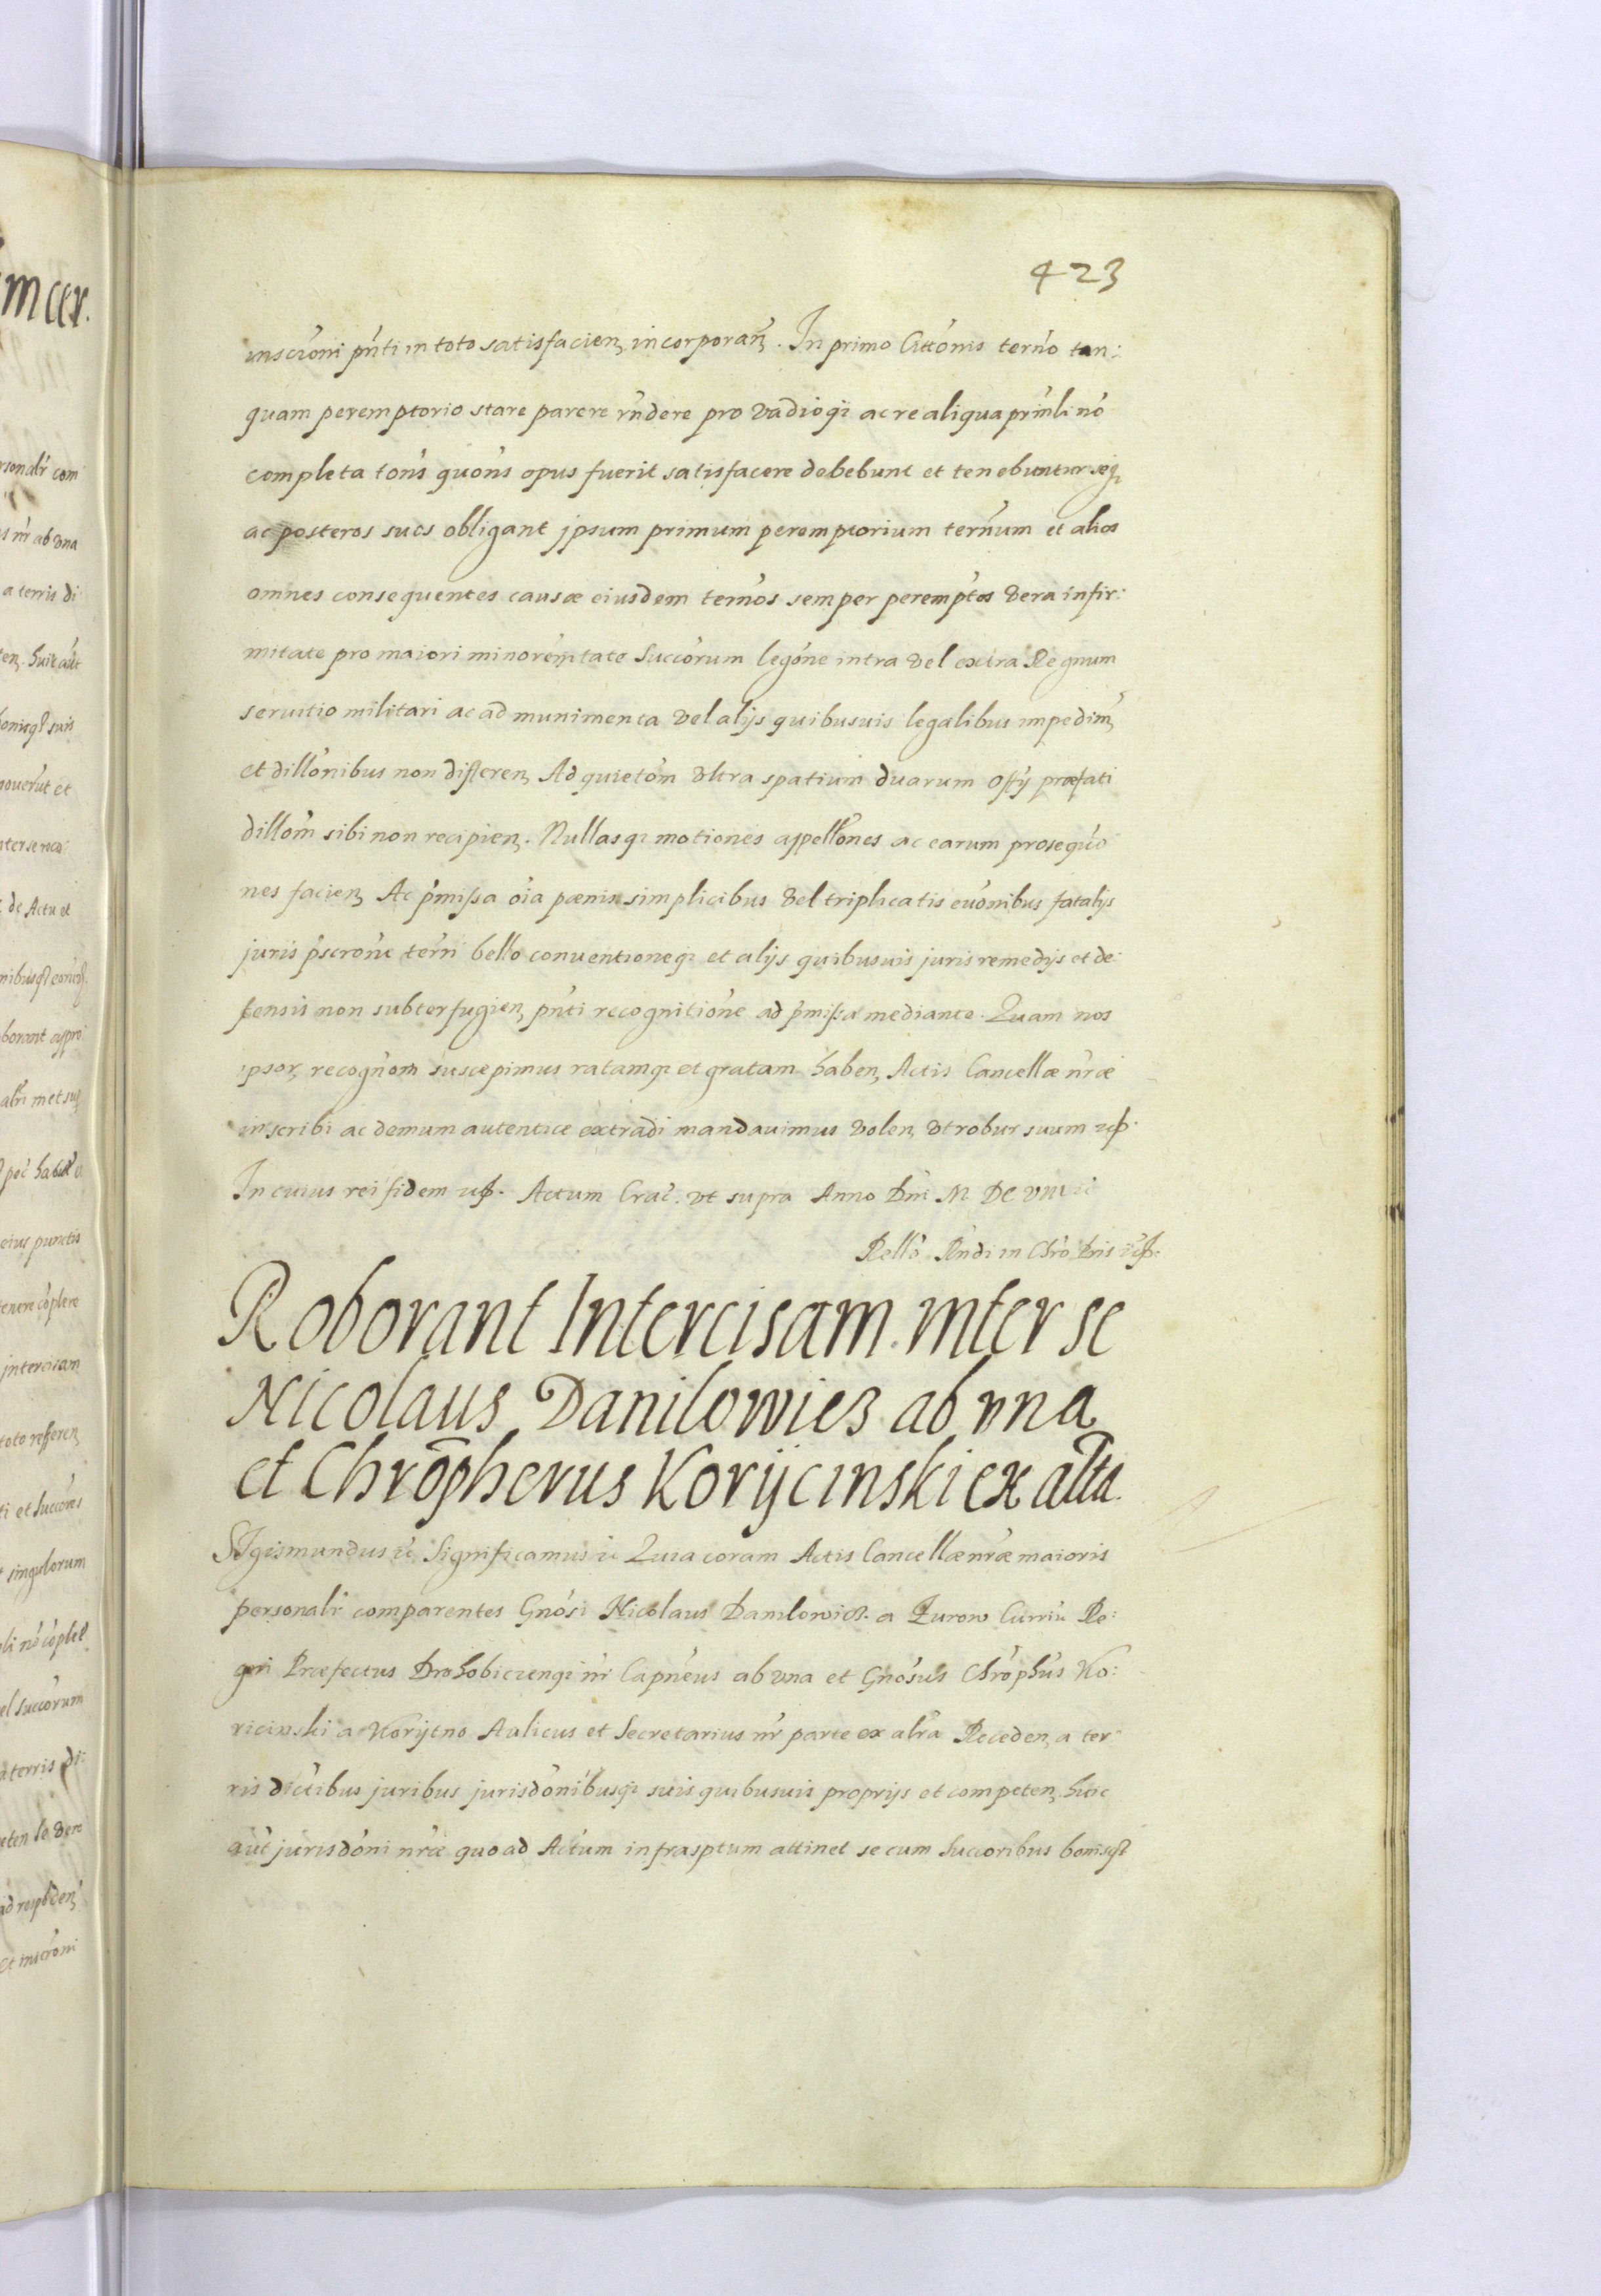 423
inscrōni pn̄ti in toto satisfacien, incorporan̄. In primo Citōnis tern̄o tan:
quam peremptorio stare parere rn̄dere pro vadioq; ac re aliqua prin̄li nō
completa totn̄s quotn̄s opus fuerit satisfacere debebunt et tenebuntur seq;
ac posteros suos obligant jpsum primum peremptorium tern̄um et alios
omnes consequentes causæ eiusdem tern̄os semper peremptos vera infir:
mitate pro maiori minoren̄itate Succōrum legōne intra vel extra Regnum
seruitio militari ac ad munimenta vel alijs quibusuis legalibus impedim̄,
et dillōnibus non differen, Ad quietōm vltra spatium duarum Offij præfati
dillōm sibi non recipien. Nullasq; motiones appellōnes ac earum prosequō
nes facien, Ac p̄missa oīa pœnis simplicibus vel triplicatis evōnibus fatalijs
juris p̄scrōne tern̄i bello conuentioneq; et alijs quibusuis juris remedijs et de:
fensis non subterfugien, pn̄ti recognitiōne ad p̄missa mediante. Quam nos
ipsor, recogn̄om suscepimus ratamq; et gratam haben, Actis Cancellæ nr̄æ
inscribi ac demum autentice extradi mandauimus volen, vt robur suum etc.
In cuius rei fidem etc. Actum Crac̄. vt supra Anno Dn̄i M DC VIII
Rellō Rn̄di in Chrō Pris etc.
Roborant Intercisam inter se
Nicolaus Danilowicz ab vna
et Chrōpherus Korijcinski ex altā.
SIgismundus ec Significamus ec Quia coram Actis Cancellæ nr̄æ maioris
personalr̄ comparentes Gnōsi Nicolaus Danilowicz. a Zurow Curriū Re:
gni Præfectus Drohobicienq; nr̄ Capn̄eus ab vna et Gnōsus Chrōphūs Ko:
ricinski a Korijtno Aulicus et Secretarius nr̄ parte ex altā Receden, a ter
ris dictibus juribus jurisdōnibusq; suis quibusuis proprijs et competen, huic
aūt jurisdōni nr̄æ quo ad Actum infrasptum attinet se cum Succoribus bonisq;